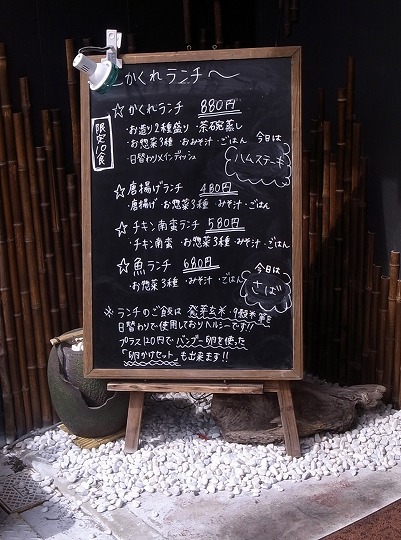 かくれランチ〜
限定10食
☆かくれランチ 880円
・お造り2種盛り ・茶碗蒸し
・お惣菜3種 ・おみそ汁 ・ごはん
・日替わりメインディッシュ
今日は
ハムステーキ
☆唐揚げランチ 480円
・唐揚げ ・お惣菜3種 ・みそ汁 ・ごはん
☆チキン南蛮ランチ 580円
・チキン南蛮 ・お惣菜3種 ・みそ汁 ・ごはん
☆魚ランチ 680円
・お惣菜3種 ・みそ汁 ・ごはん
今日は
さば
※ランチのご飯は 発芽玄米・9穀米 等を
日替わりで使用しておりヘルシーです!!
プラス120円で バンブー卵を使った
「卵かけセット」も出来ます!!